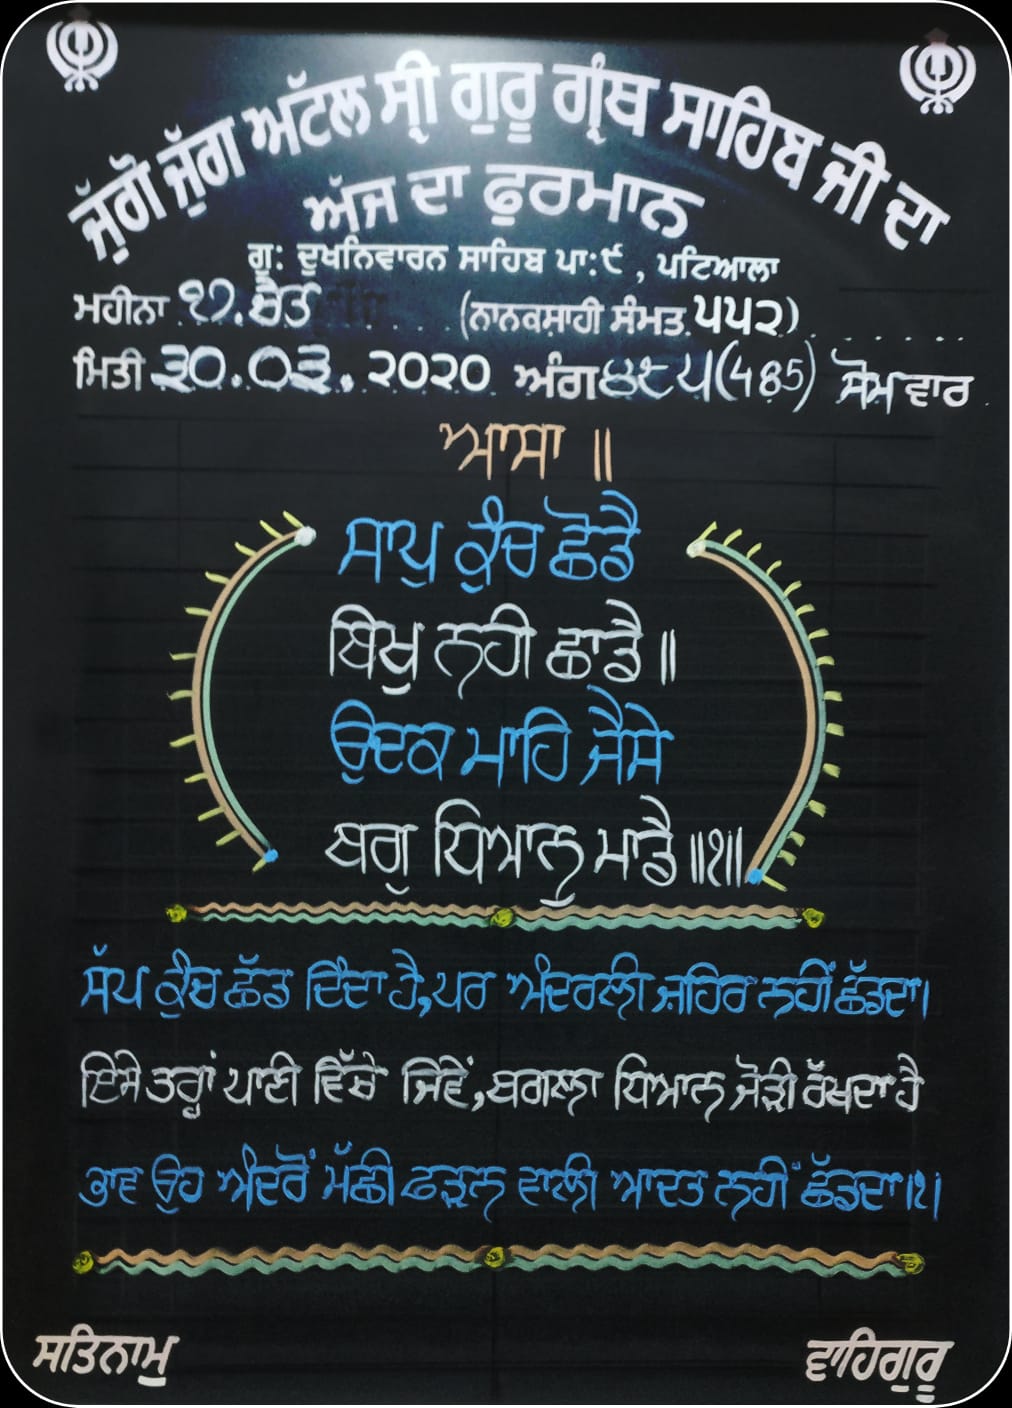 ਜੁੱਗੋ ਜੁੱਗ ਅੱਟਲ ਸ੍ਰੀ ਗੁਰੂ ਗ੍ਰੰਥ ਸਾਹਿਬ ਜੀ ਦਾ
ਅੱਜ ਦਾ ਫੁਰਮਾਨ
ਗੁ: ਦੁਖਨਿਵਾਰਨ ਸਾਹਿਬ ਪਾ:੯ , ਪਟਿਆਲਾ
ਮਹੀਨਾ ੧੭.ਚੇਤ (ਨਾਨਕਸ਼ਾਹੀ ਸੰਮਤ ੫੫੨)
ਮਿਤੀ ੩੦.੦੩.੨੦੨੦ ਅੰਗ ੪੮੫(485) ਸੋਮਵਾਰ
ਆਸਾ ॥
ਸਾਪੁ ਕੁੰਚ ਛੋਡੈ
ਬਿਖੁ ਨਹੀ ਛਾਡੈ ॥
ਉਦਕ ਮਾਹਿ ਜੈਸੇ
ਬਗੁ ਧਿਆਨੁ ਮਾਡੈ ॥੧॥
ਸੱਪ ਕੁੰਚ ਛੱਡ ਦਿੰਦਾ ਹੈ,ਪਰ ਅੰਦਰਲੀ ਜ਼ਹਿਰ ਨਹੀਂ ਛੱਡਦਾ।
ਇਸੇ ਤਰ੍ਹਾਂ ਪਾਣੀ ਵਿੱਚੇ ਜਿਵੇਂ,ਬਗਲਾ ਧਿਆਨ ਜੋੜੀ ਰੱਖਦਾ ਹੈ
ਭਾਵ ਉਹ ਅੰਦਰੋਂ ਮੱਛੀ ਫੜਨ ਵਾਲੀ ਆਦਤ ਨਹੀਂ ਛੱਡਦਾ।੧।
ਸਤਿਨਾਮੁ ਵਾਹਿਗੁਰੂ